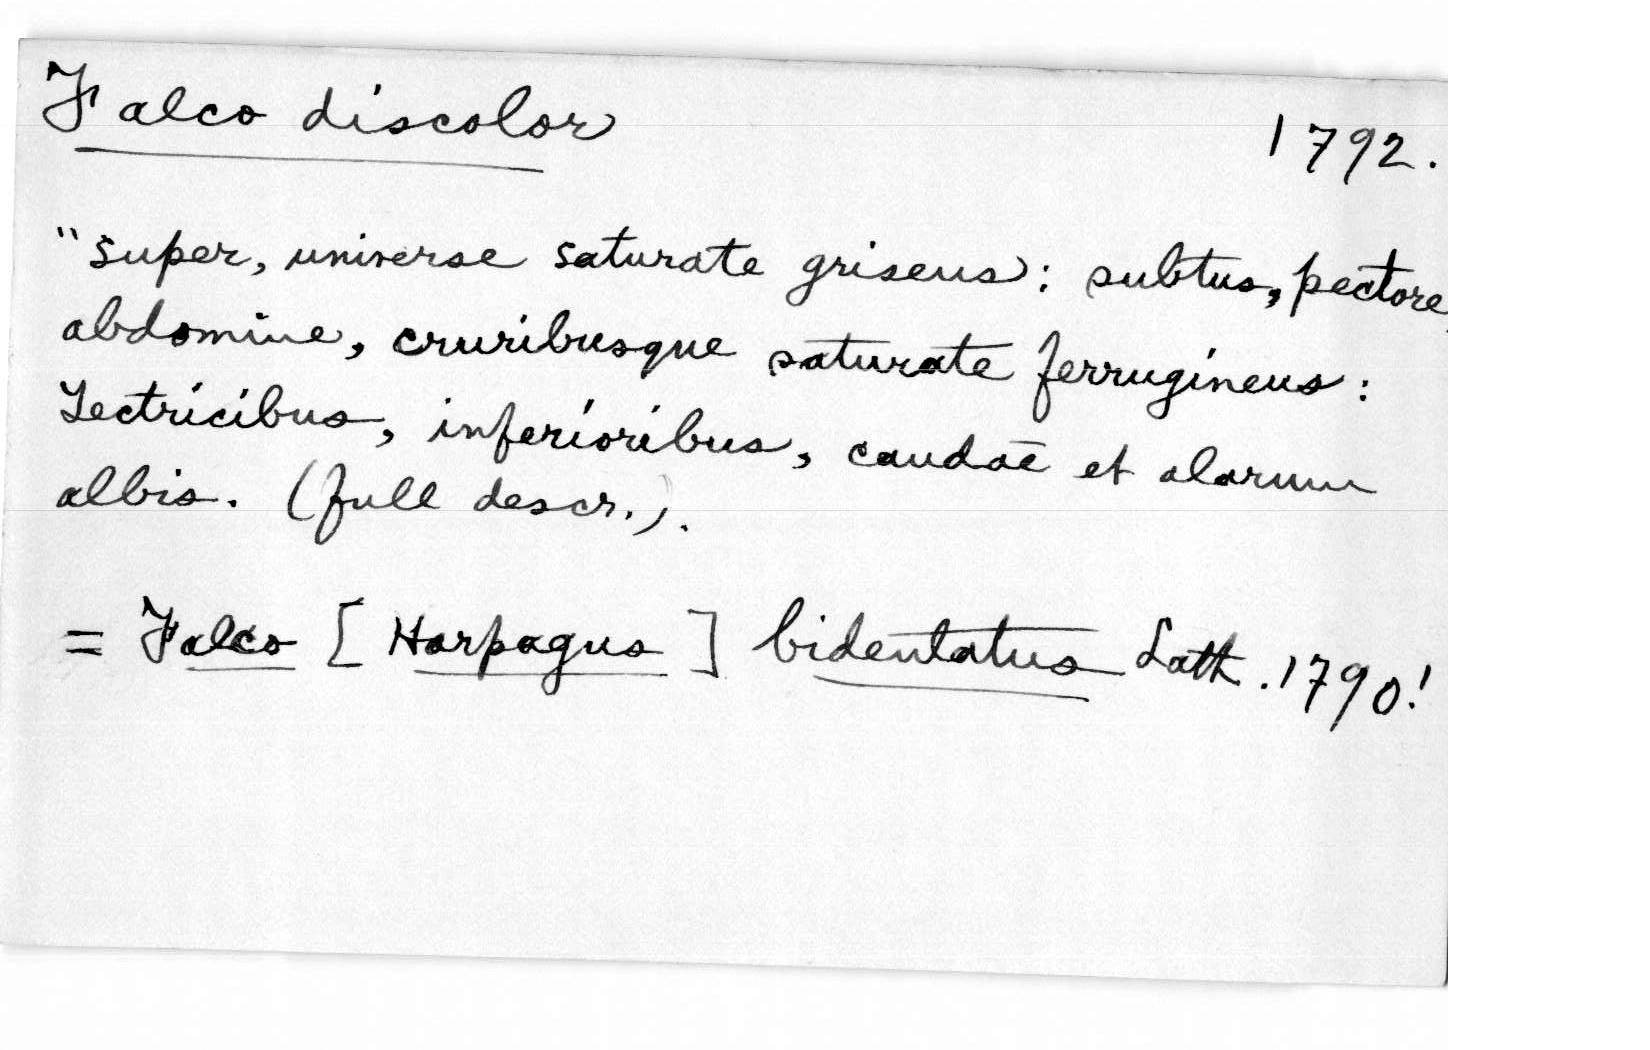 Falco discolor 1792.
"super, universe saturate griseus: subtus, pectore,
abdomine, cruribusque saturate ferrugineus:
Tectricibus, inferioribus, caudae et alarum
albis. (full descr.).
= Falco [Harpagus] bidentatus Lath. 1790!